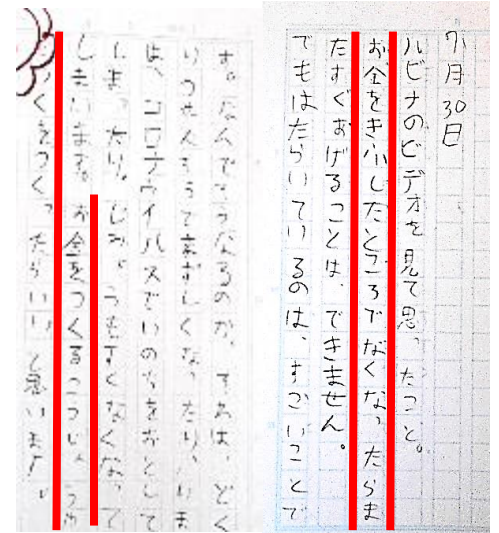 7月30日
ルビナのビデオを見て思ったこと。
お金をきふしたところでなくなったらま
たすぐあげることは、できません。
でもはたらいているのは、すごいことで
す。なんでそうなるのか。それは、どく
は、コロナウイルスでいのちをおとして
しまったり。しごと うもすくなくなって
しまいます。お金をつくるこうじょうを
くをつくったらいい、と思います。